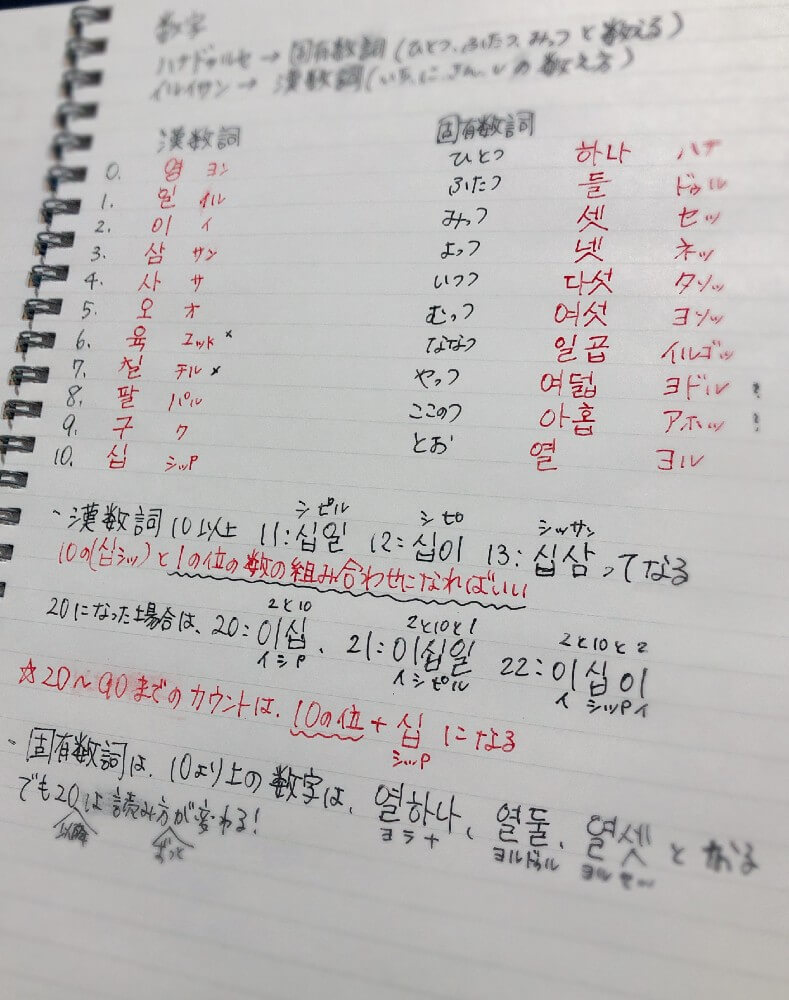 数字
ハナドゥルセ→固有数詞(ひとつ、ふたつ、みっつと数える)
イルイサン→漢数詞(いち、に、さん、しの数え方)
漢数詞
0. 영 ヨン
1. 일 イル
2. 이 イ
3. 삼 サン
4. 사 サ
5. 오 オ
6. 육 ユッk×
7. 칠 チル×
8. 팔 パル
9. 구 ク
10. 십 シッP
固有数詞
ひとつ 하나 ハナ
ふたつ 들 ドゥル
みっつ 셋 セッ
よっつ 넷 ネッ
いつつ 다섯 タソッ
むっつ 여섯 ヨソッ
ななつ 일곱 イルゴッ
やっつ 여덟 ヨドル
ここのつ 아홉 アホッ
とお 열 ヨル
シピル シピ シッサン
・漢数詞10以上 11:십일 12:십이 13:십삼 ってなる
10の(십シッ)と1の位の数の組み合わせになればいい
2と10 2と10と1 2と10と2
20になった場合は、20:이십、21:이십일 22:이십이
イシP イシピル イ シッP イ
☆20〜90までのカウントは、10の位+십になる
シッP
・固有数詞は、10より上の数字は、열하나、열둘、열셋となる
ヨラナ ヨルドゥル ヨルセッ
でも20は読み方が変わる!
以降 ずっと